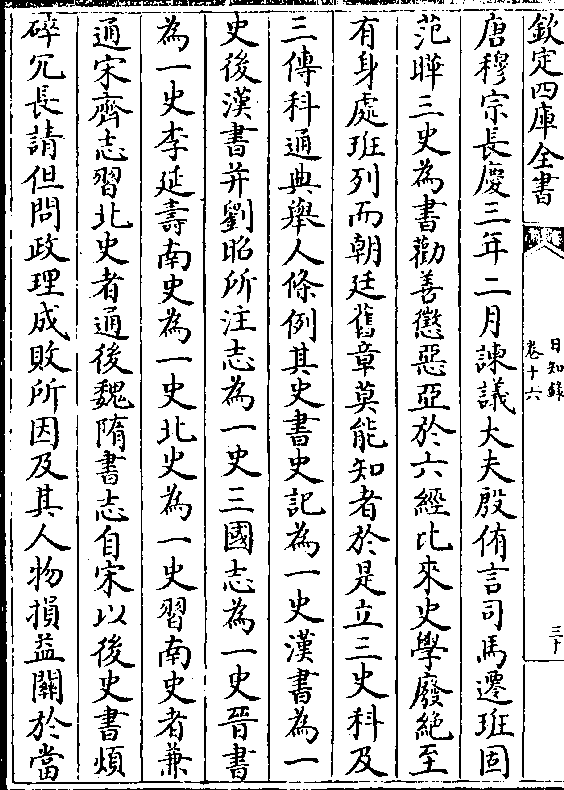 欽定四庫全書
日知錄
卷十六
三十
唐穆宗長慶三年二月諫議大夫殷侑言司馬遷班固
范曄三史為書勸善懲惡亞於六經比來史學廢絕至
有身處班列而朝廷舊章莫能知者於是立三史科及
三傳科通典舉人條例其史書史記為一史漢書為一
史後漢書并劉昭所注志為一史三國志為一史晉書
為一史李延壽南史為一史北史為一史習南史者兼
通宋齊志習北史者通後魏隋書志自宋以後史書煩
碎冗長請但問政理成敗所因及其人物損益關於當